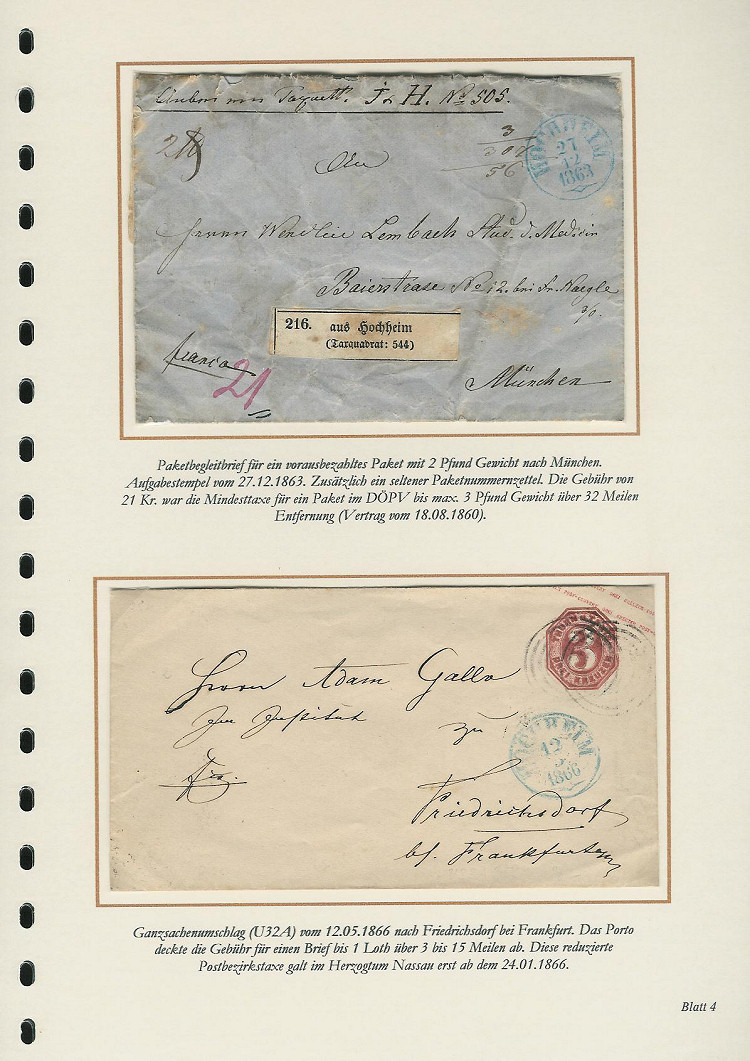 J. H. No 505.
3
307
56
HOCHHEIM
27
12
1863
An
Herrn Wendlein Lembach Stud. d. Medicin
Baierstrase No 12. bei Fr. Naegle
216. aus Hochheim
(Taxquadrat: 544)
franco
21
München
Paketbegleitbrief für ein vorausbezahltes Paket mit 2 Pfund Gewicht nach München.
Aufgabestempel vom 27.12.1863. Zusätzlich ein seltener Paketnummernzettel. Die Gebühr von
21 Kr. war die Mindesttaxe für ein Paket im DÖPV bis max. 3 Pfund Gewicht über 32 Meilen
Entfernung (Vertrag vom 18.08.1860).
3
DREI KREUZER
Herrn Adam Gallo
Im Institut zu
HOCHHEIM
12
5
1866
Fr.
Friedrichsdorf
bf. Frankfurt a/m
Ganzsachenumschlag (U32A) vom 12.05.1866 nach Friedrichsdorf bei Frankfurt. Das Porto
deckte die Gebühr für einen Brief bis 1 Loth über 3 bis 15 Meilen ab. Diese reduzierte
Postbezirkstaxe galt im Herzogtum Nassau erst ab dem 24.01.1866.
Blatt 4